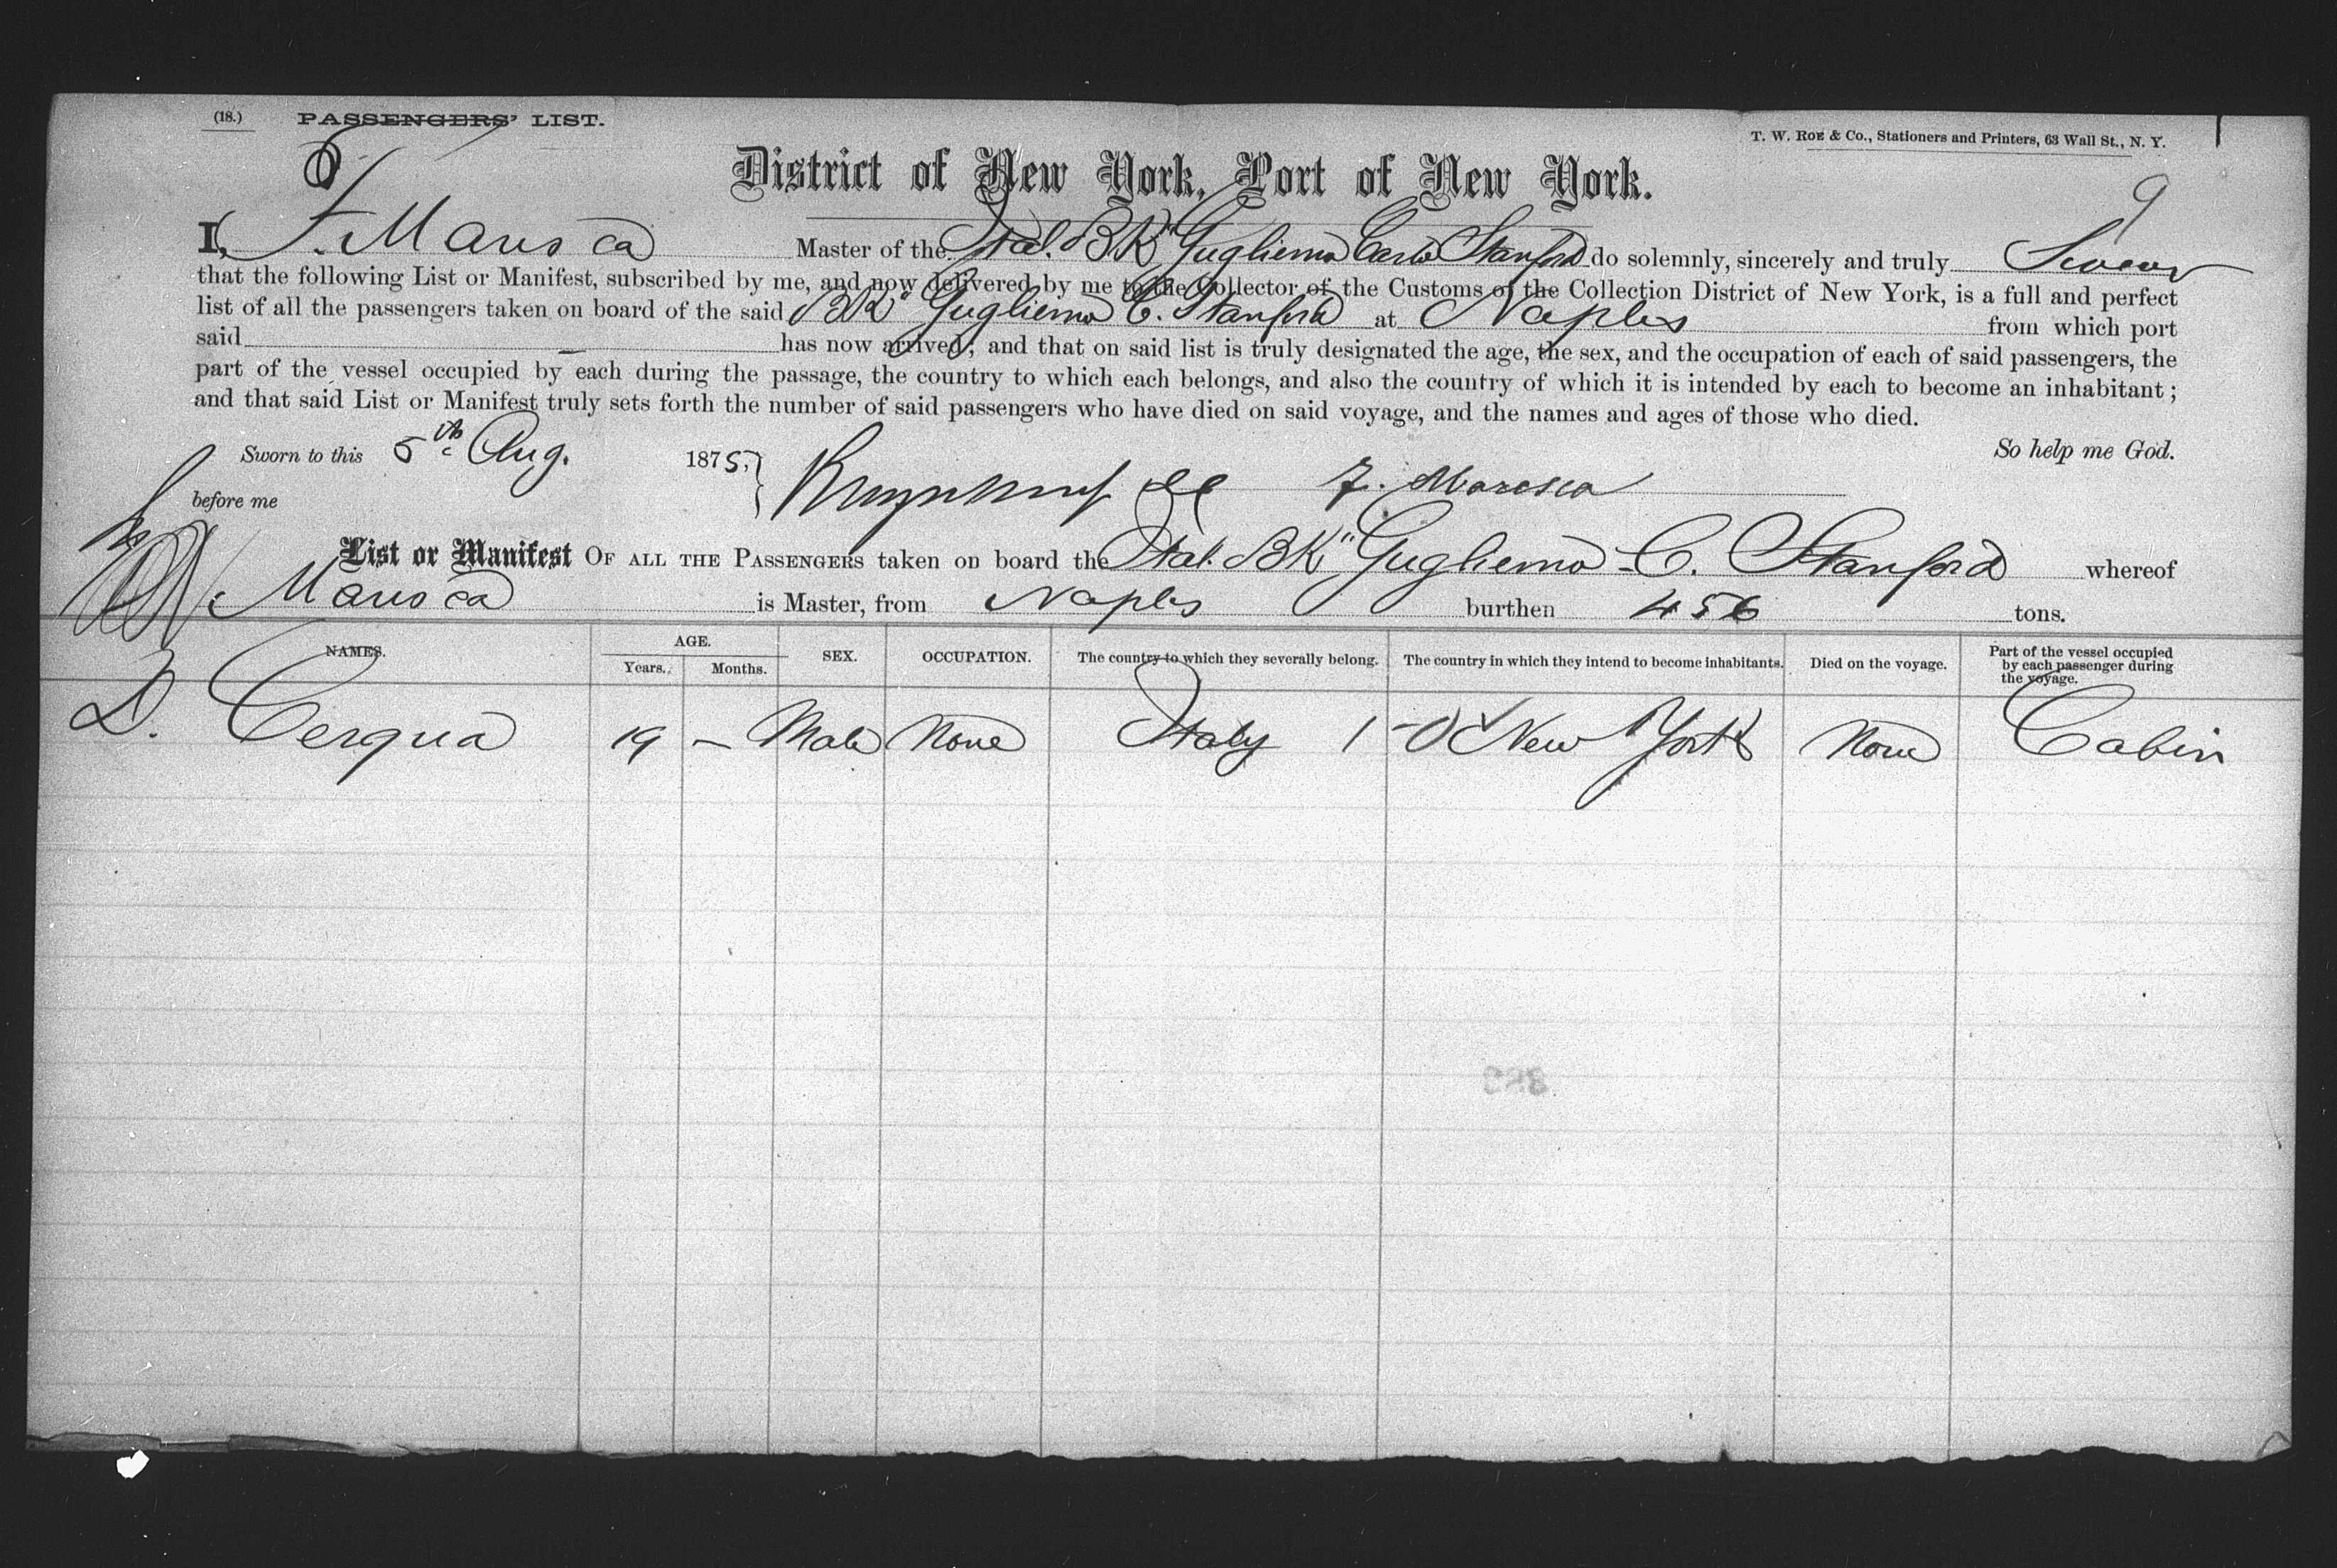 (18.) PASSENGERS' LIST.
T. W. ROE & Co., Stationers and Printers, 63 Wall St., N. Y.
District of New York, Port of New York.
9
I, F. Maresca Master of the Ital. BK "Gugliemo Carlo Stanford do solemnly, sincerely and truly Swear
that the following List or Manifest, subscribed by me, and now delivered by me to the Collector of the Customs of the Collection District of New York, is a full and perfect
list of all the passengers taken on board of the said BK "Gugliemo C. Stanford at Naples from which port
said has now arrived; and that on said list is truly designated the age, the sex, and the occupation of each of said passengers, the
part of the vessel occupied by each during the passage, the country to which each belongs, and also the country of which it is intended by each to become an inhabitant;
and that said List or Manifest truly sets forth the number of said passengers who have died on said voyage, and the names and ages of those who died.
Sworn to this 5th Aug. 1875, So help me God.
before me F. Maresca
List or Manifest OF ALL THE PASSENGERS taken on board the Ital. BK "Gugliemo C. Stanford whereof
Maresca is Master, from Naples burthen 456 tons.
NAMES. AGE. SEX. OCCUPATION. The country to which they severally belong. The country in which they intend to become inhabitants. Died on the voyage. Part of the vessel occupied by each passenger during the voyage.
Years. Months.
D. Cerqua 19 — Male None Italy 1 New York None Cabin